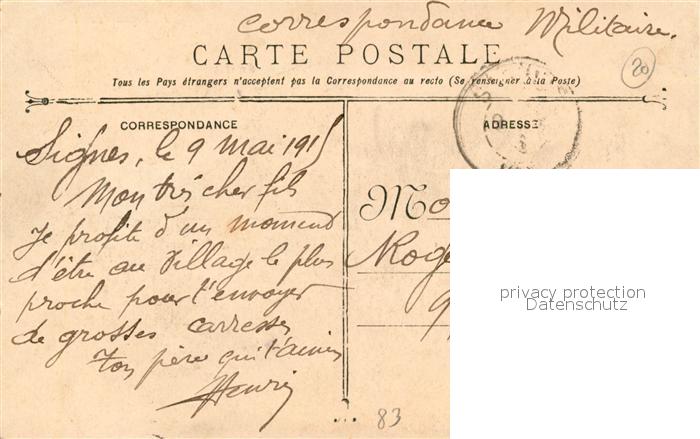 Correspondance Militaire.
CARTE POSTALE
Tous les Pays étrangers n'acceptent pas la Correspondance au recto (Se renseigner à la Poste)
20
CORRESPONDANCE
ADRESSE
Signes, le 9 mai 1915
Mon très cher fils
Je profite d'un moment
d'être au village le plus
proche pour t'envoyer
de grosses carresses
ton père qui t'aime
Henri
Mo
Roge
9
83
privacy protection
Datenschutz